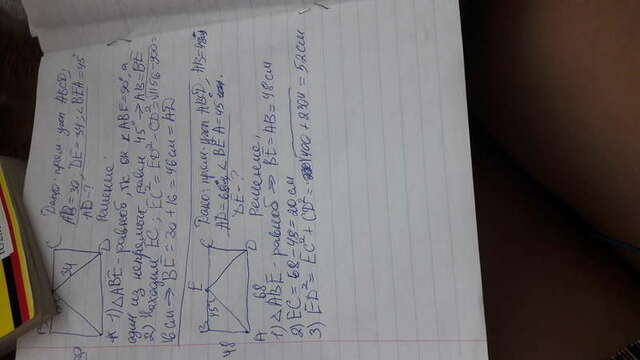 B C
34
30
A D
Дано: прям. угол ABCD,
AB = 30, DE = 34, ∠BEA = 45°
AD - ?
Решение:
1) △ABE - равноб, тк он и ∠ABE = 90°, а
один из непрямых равен 45° → AB = BE
2) Находим EC; EC² = ED² - CD² = √1156 - 900 =
16 см → BE = 30 + 16 = 46 см = AD
B E C
45°
48
A D
68
Дано: прям-угол ABCD, AB = 48см
AD = 68см ∠BEA = 45°
DE - ?
Решение,
1) △ABE - равноб ⇒ BE = AB = 48 см
2) EC = 68 - 48 = 20 см
3) ED² = EC² + CD² = √400 + 2304 = 52 см